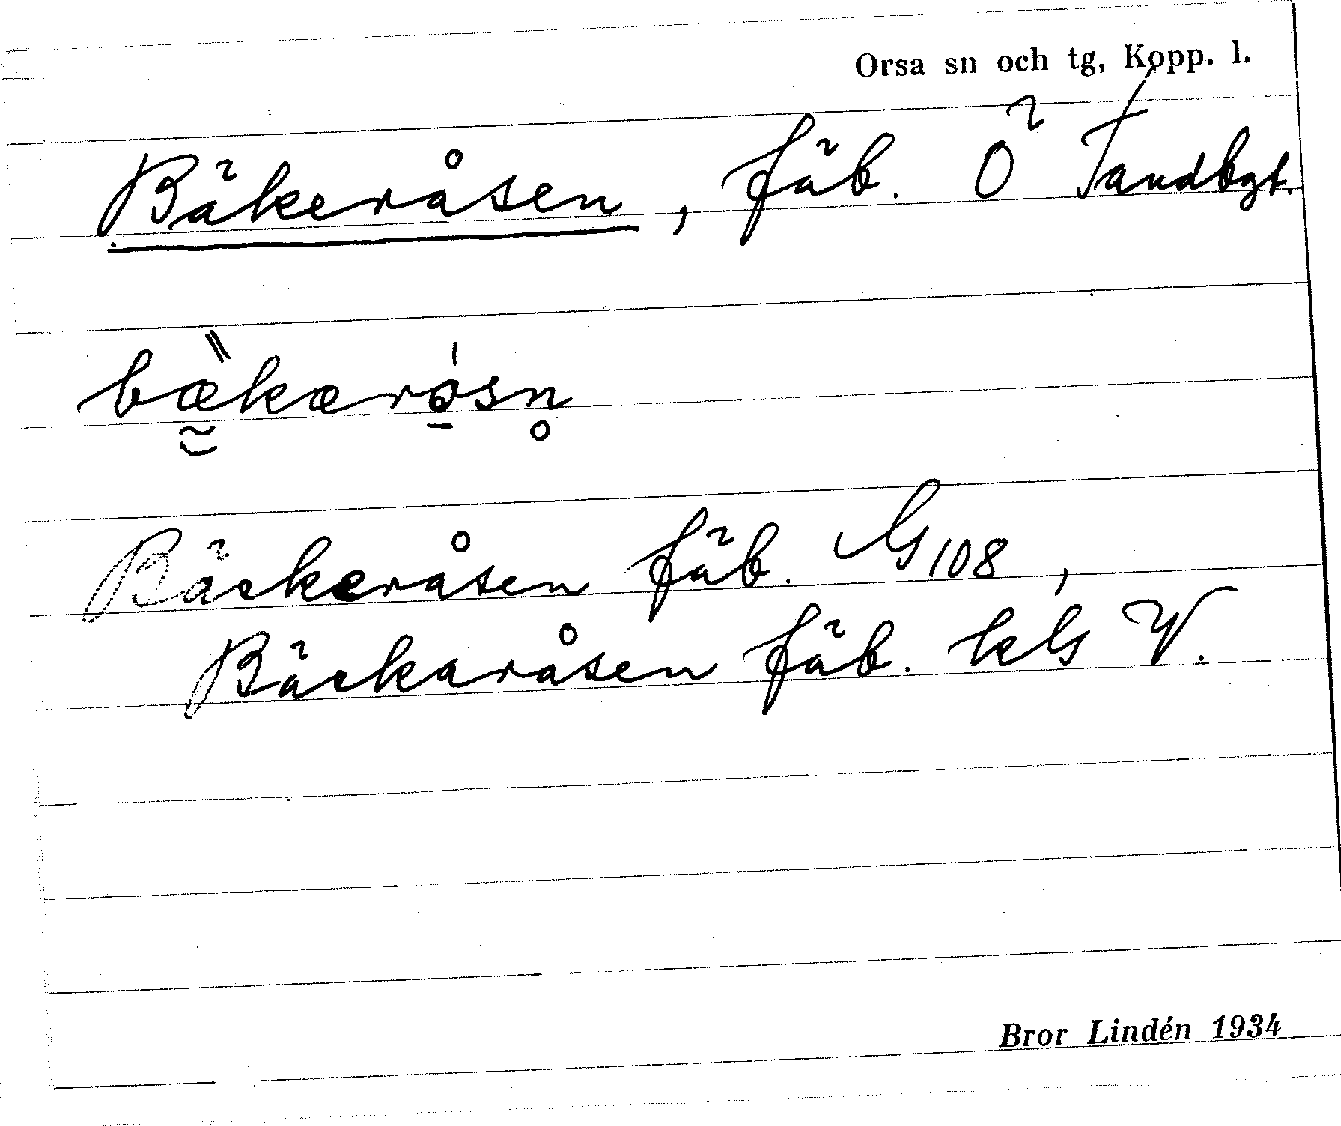 Orsa sn och tg, Kopp. l.
Bäkeråsen, fäb. Ö Tandbgt.
bækærósn
Bäckeråsen fäb. G108,
Bäckaråsen fäb. kls V.
Bror Lindén 1934